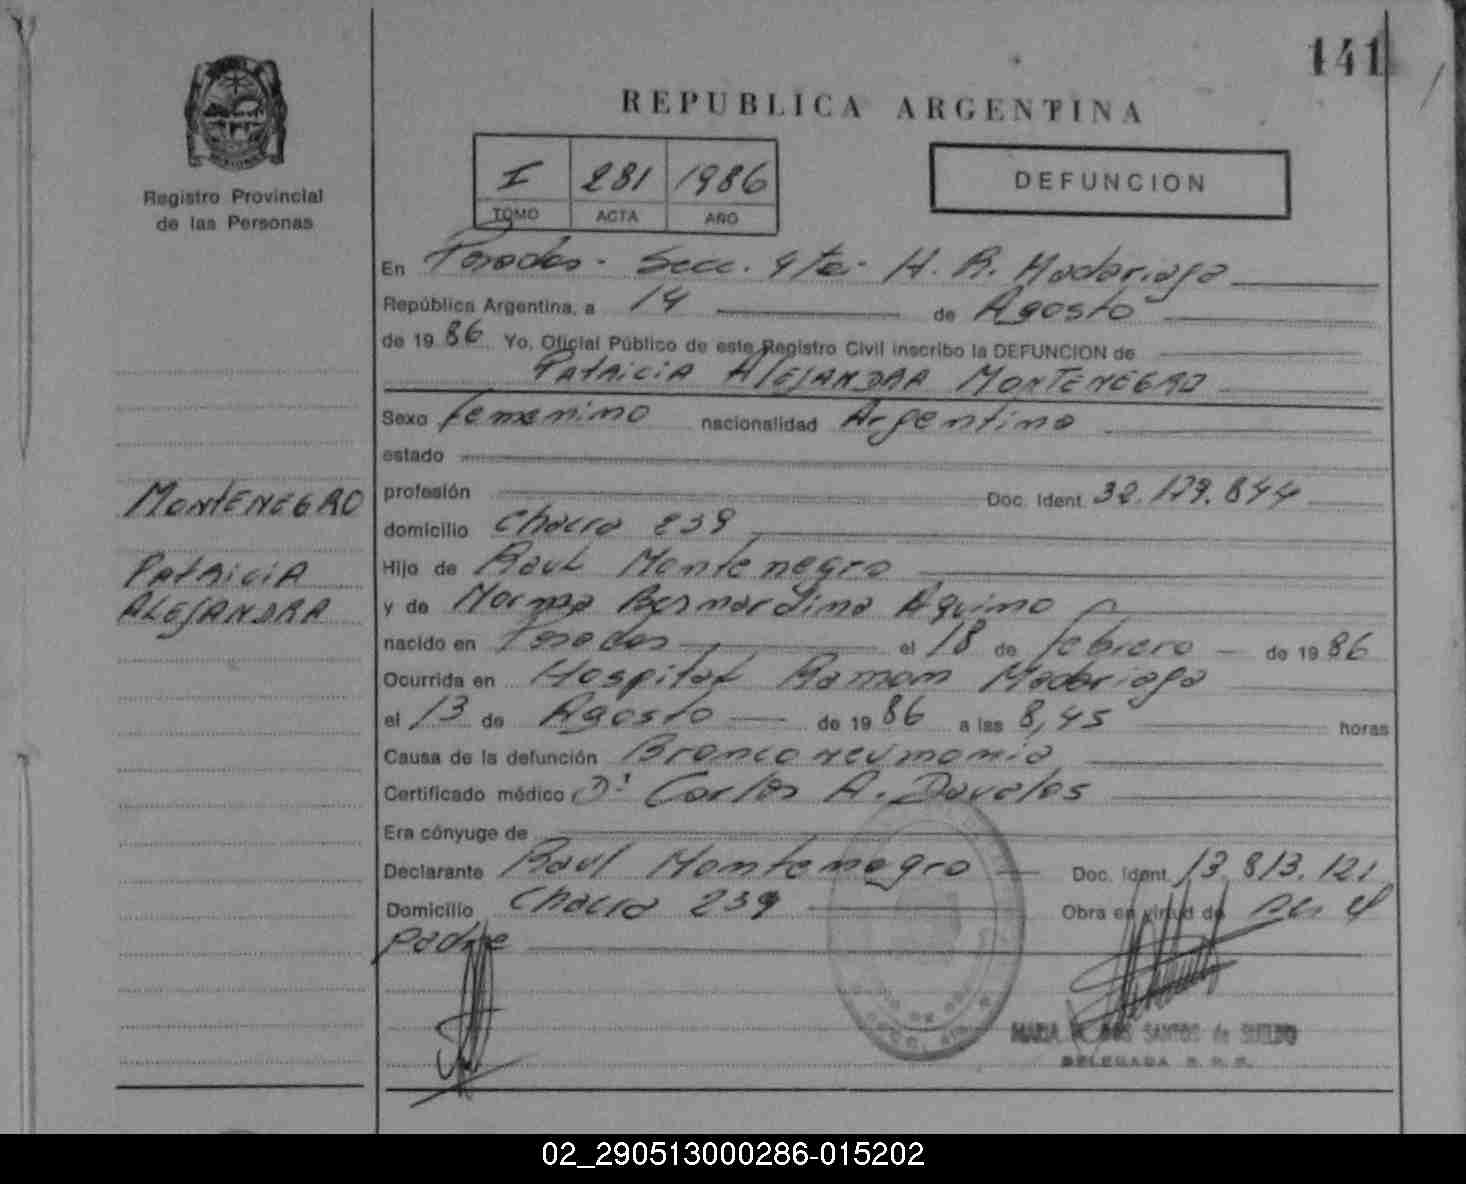 141
REPUBLICA ARGENTINA
Registro Provincial
de las Personas
I 281 1986
TOMO ACTA AÑO
DEFUNCION
En Posadas - Secc. 4ta. H. R. Madariaga
República Argentina, a 14 de Agosto
de 19 86 Yo, Oficial Público de este Registro Civil inscribo la DEFUNCION de
PATRICIA ALEJANDRA MONTENEGRO
Sexo femenino nacionalidad Argentina
estado
MONTENEGRO
PATRICIA
ALEJANDRA
profesión Doc. Ident. 32.179.844
domicilio Chacra 239
Hijo de Raul Montenegro
y de Norma Bernardina Aquino
nacido en Posadas el 18 de febrero de 19 86
Ocurrida en Hospital Ramon Madariaga
el 13 de Agosto de 19 86 a las 8,45 horas
Causa de la defunción Bronconeumonia
Certificado médico Dr Carlos A. Davalos
Era cónyuge de
Declarante Raul Montenegro Doc. Ident. 13.813.121
Domicilio Chacra 239 Obra en virtud de
padre
MARIA DOS SANTOS de SUELDO
DELEGADA R. P. P.
02_290513000286-015202